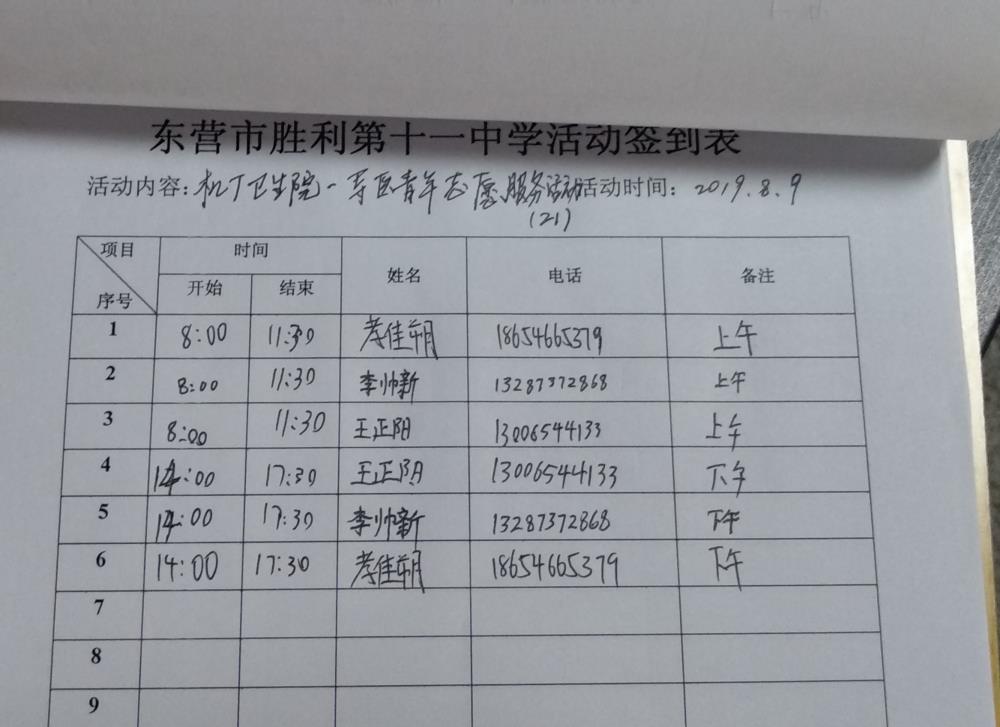 东营市胜利第十一中学活动签到表
活动内容：机厂卫生院-导医青年志愿服务活动 活动时间：2019.8.9
(21)
项目 时间 姓名 电话 备注
序号 开始 结束
1 8:00 11:30 孝佳朔 18654665379 上午
2 8:00 11:30 李帅新 13287372868 上午
3 8:00 11:30 王正阳 13006544133 上午
4 14:00 17:30 王正阳 13006544133 下午
5 14:00 17:30 李帅新 13287372868 下午
6 14:00 17:30 孝佳朔 18654665379 下午
7
8
9